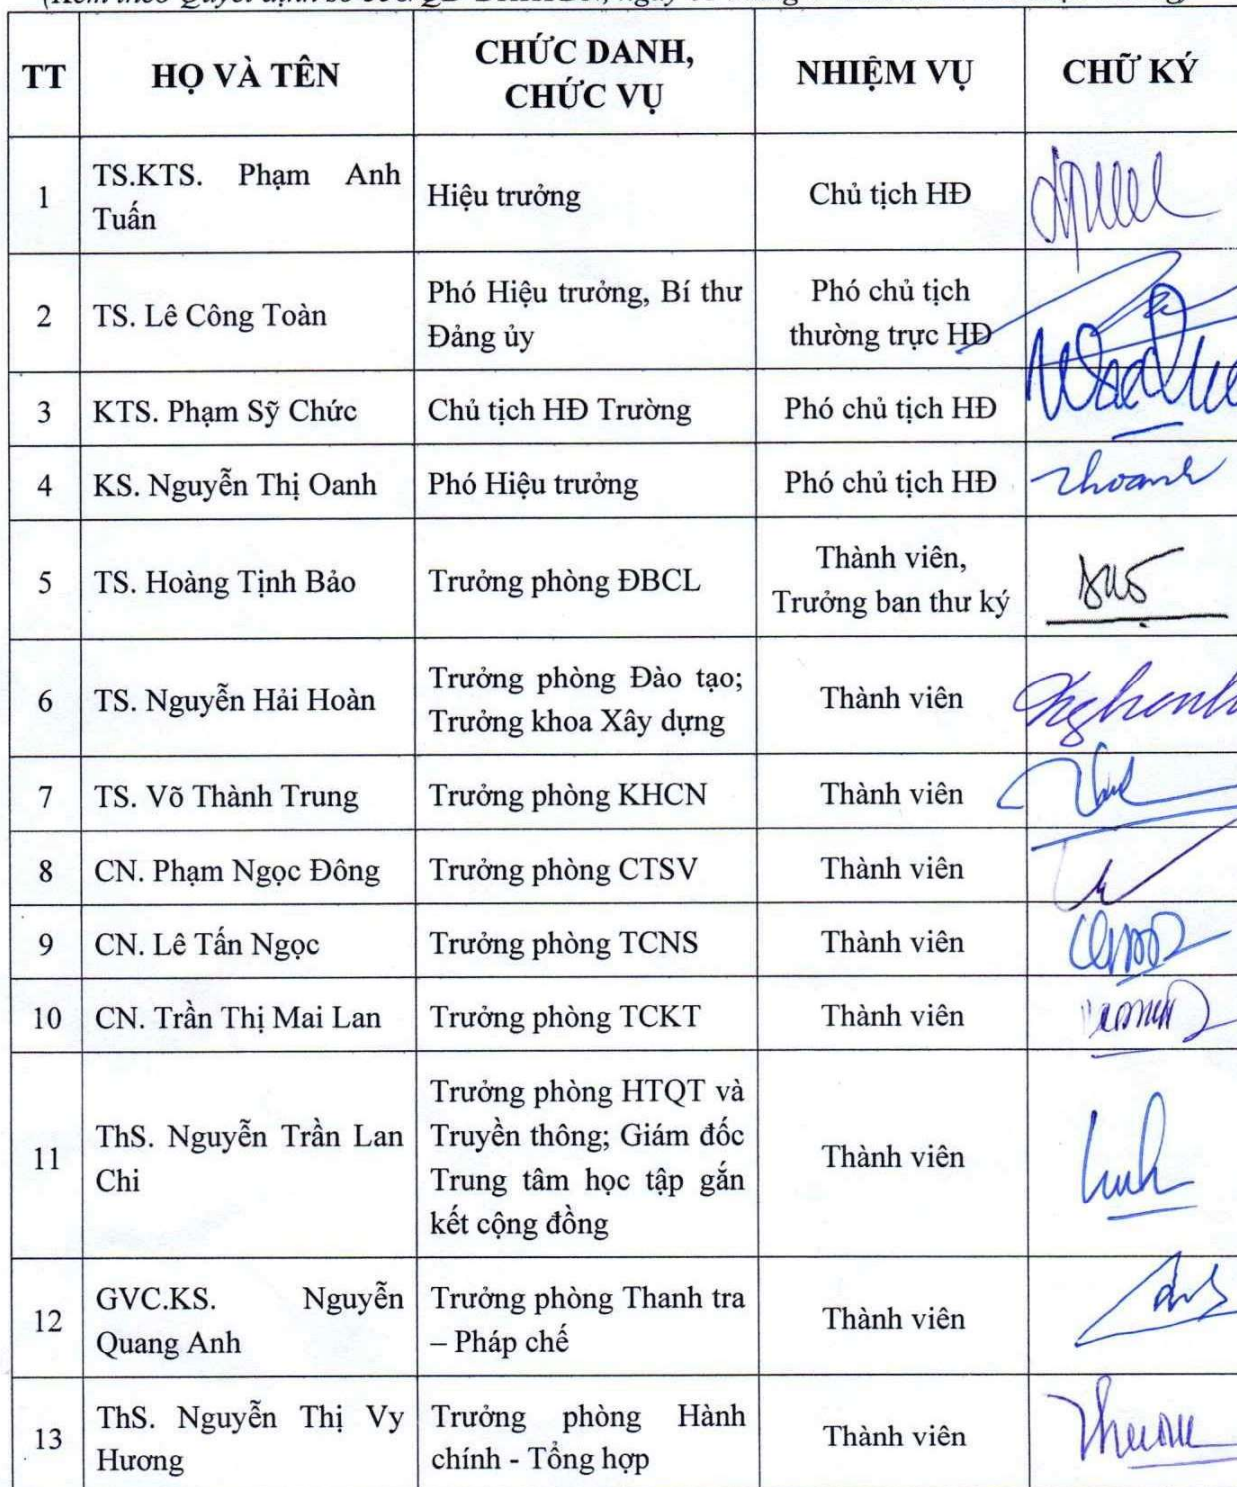 (Kèm theo Quyết định số
TT
HỌ VÀ TÊN
CHỨC DANH,
CHỨC VỤ
NHIỆM VỤ
CHỮ KÝ
1
TS.KTS. Phạm Anh
Tuấn
Hiệu trưởng
Chủ tịch HĐ
2
TS. Lê Công Toàn
Phó Hiệu trưởng, Bí thư
Đảng ủy
Phó chủ tịch
thường trực HĐ
3
KTS. Phạm Sỹ Chức
Chủ tịch HĐ Trường
Phó chủ tịch HĐ
4
KS. Nguyễn Thị Oanh
Phó Hiệu trưởng
Phó chủ tịch HĐ
5
TS. Hoàng Tịnh Bảo
Trưởng phòng ĐBCL
Thành viên,
Trưởng ban thư ký
6
TS. Nguyễn Hải Hoàn
Trưởng phòng Đào tạo;
Trưởng khoa Xây dựng
Thành viên
7
TS. Võ Thành Trung
Trưởng phòng KHCN
Thành viên
8
CN. Phạm Ngọc Đông
Trưởng phòng CTSV
Thành viên
9
CN. Lê Tấn Ngọc
Trưởng phòng TCNS
Thành viên
10
CN. Trần Thị Mai Lan
Trưởng phòng TCKT
Thành viên
11
ThS. Nguyễn Trần Lan
Chi
Trưởng phòng HTQT và
Truyền thông; Giám đốc
Trung tâm học tập gắn
kết cộng đồng
Thành viên
12
GVC.KS. Nguyễn
Quang Anh
Trưởng phòng Thanh tra
– Pháp chế
Thành viên
13
ThS. Nguyễn Thị Vy
Hương
Trưởng phòng Hành
chính - Tổng hợp
Thành viên